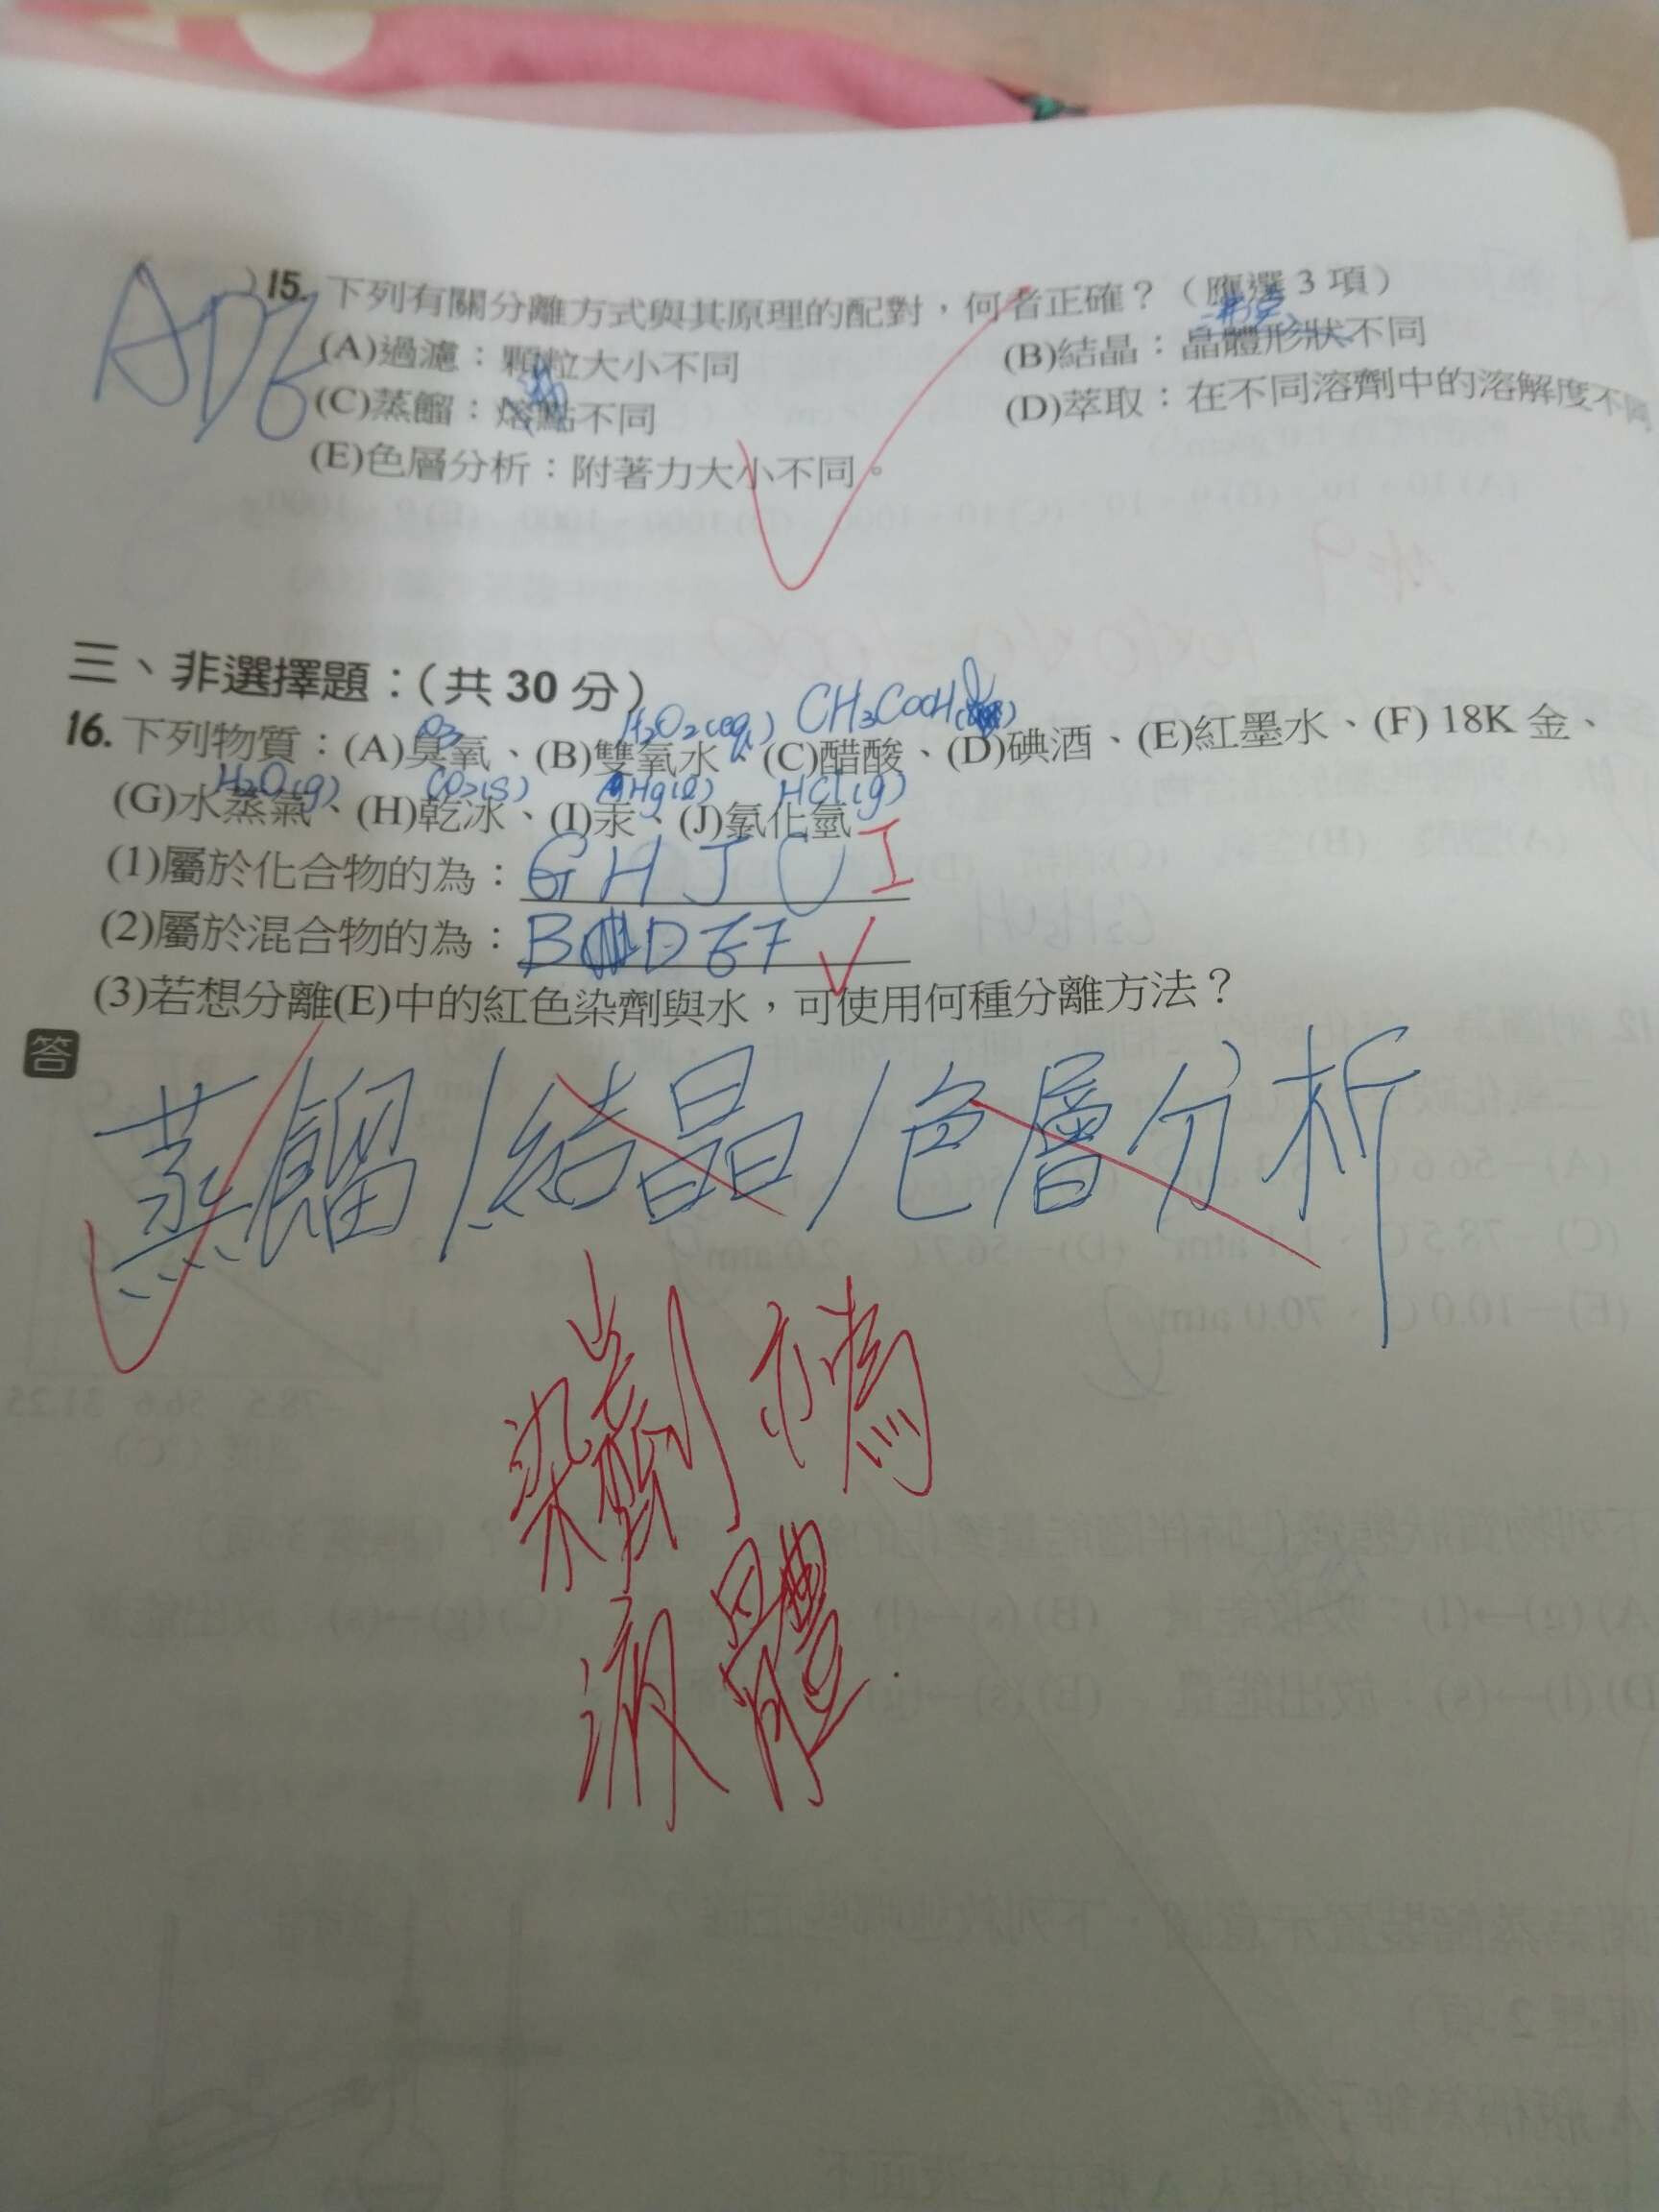 ADE
)15. 下列有關分離方式與其原理的配對，何者正確？（應選3項）
(A)過濾：顆粒大小不同
(B)結晶：晶體形狀不同
(C)蒸餾：熔點不同
沸
(D)萃取：在不同溶劑中的溶解度不同
(E)色層分析：附著力大小不同。
三、非選擇題：（共30分）
O3 H2O2(aq) CH3COOH
16. 下列物質：(A)臭氧、(B)雙氧水、(C)醋酸、(D)碘酒、(E)紅墨水、(F) 18K 金、
H2O(g) CO2(s) Hg(l) HCl(g)
(G)水蒸氣、(H)乾冰、(I)汞、(J)氯化氫
(1)屬於化合物的為：G H J C I
(2)屬於混合物的為：B D E F
(3)若想分離(E)中的紅色染劑與水，可使用何種分離方法？
答
蒸餾/結晶/色層分析
染劑
液體